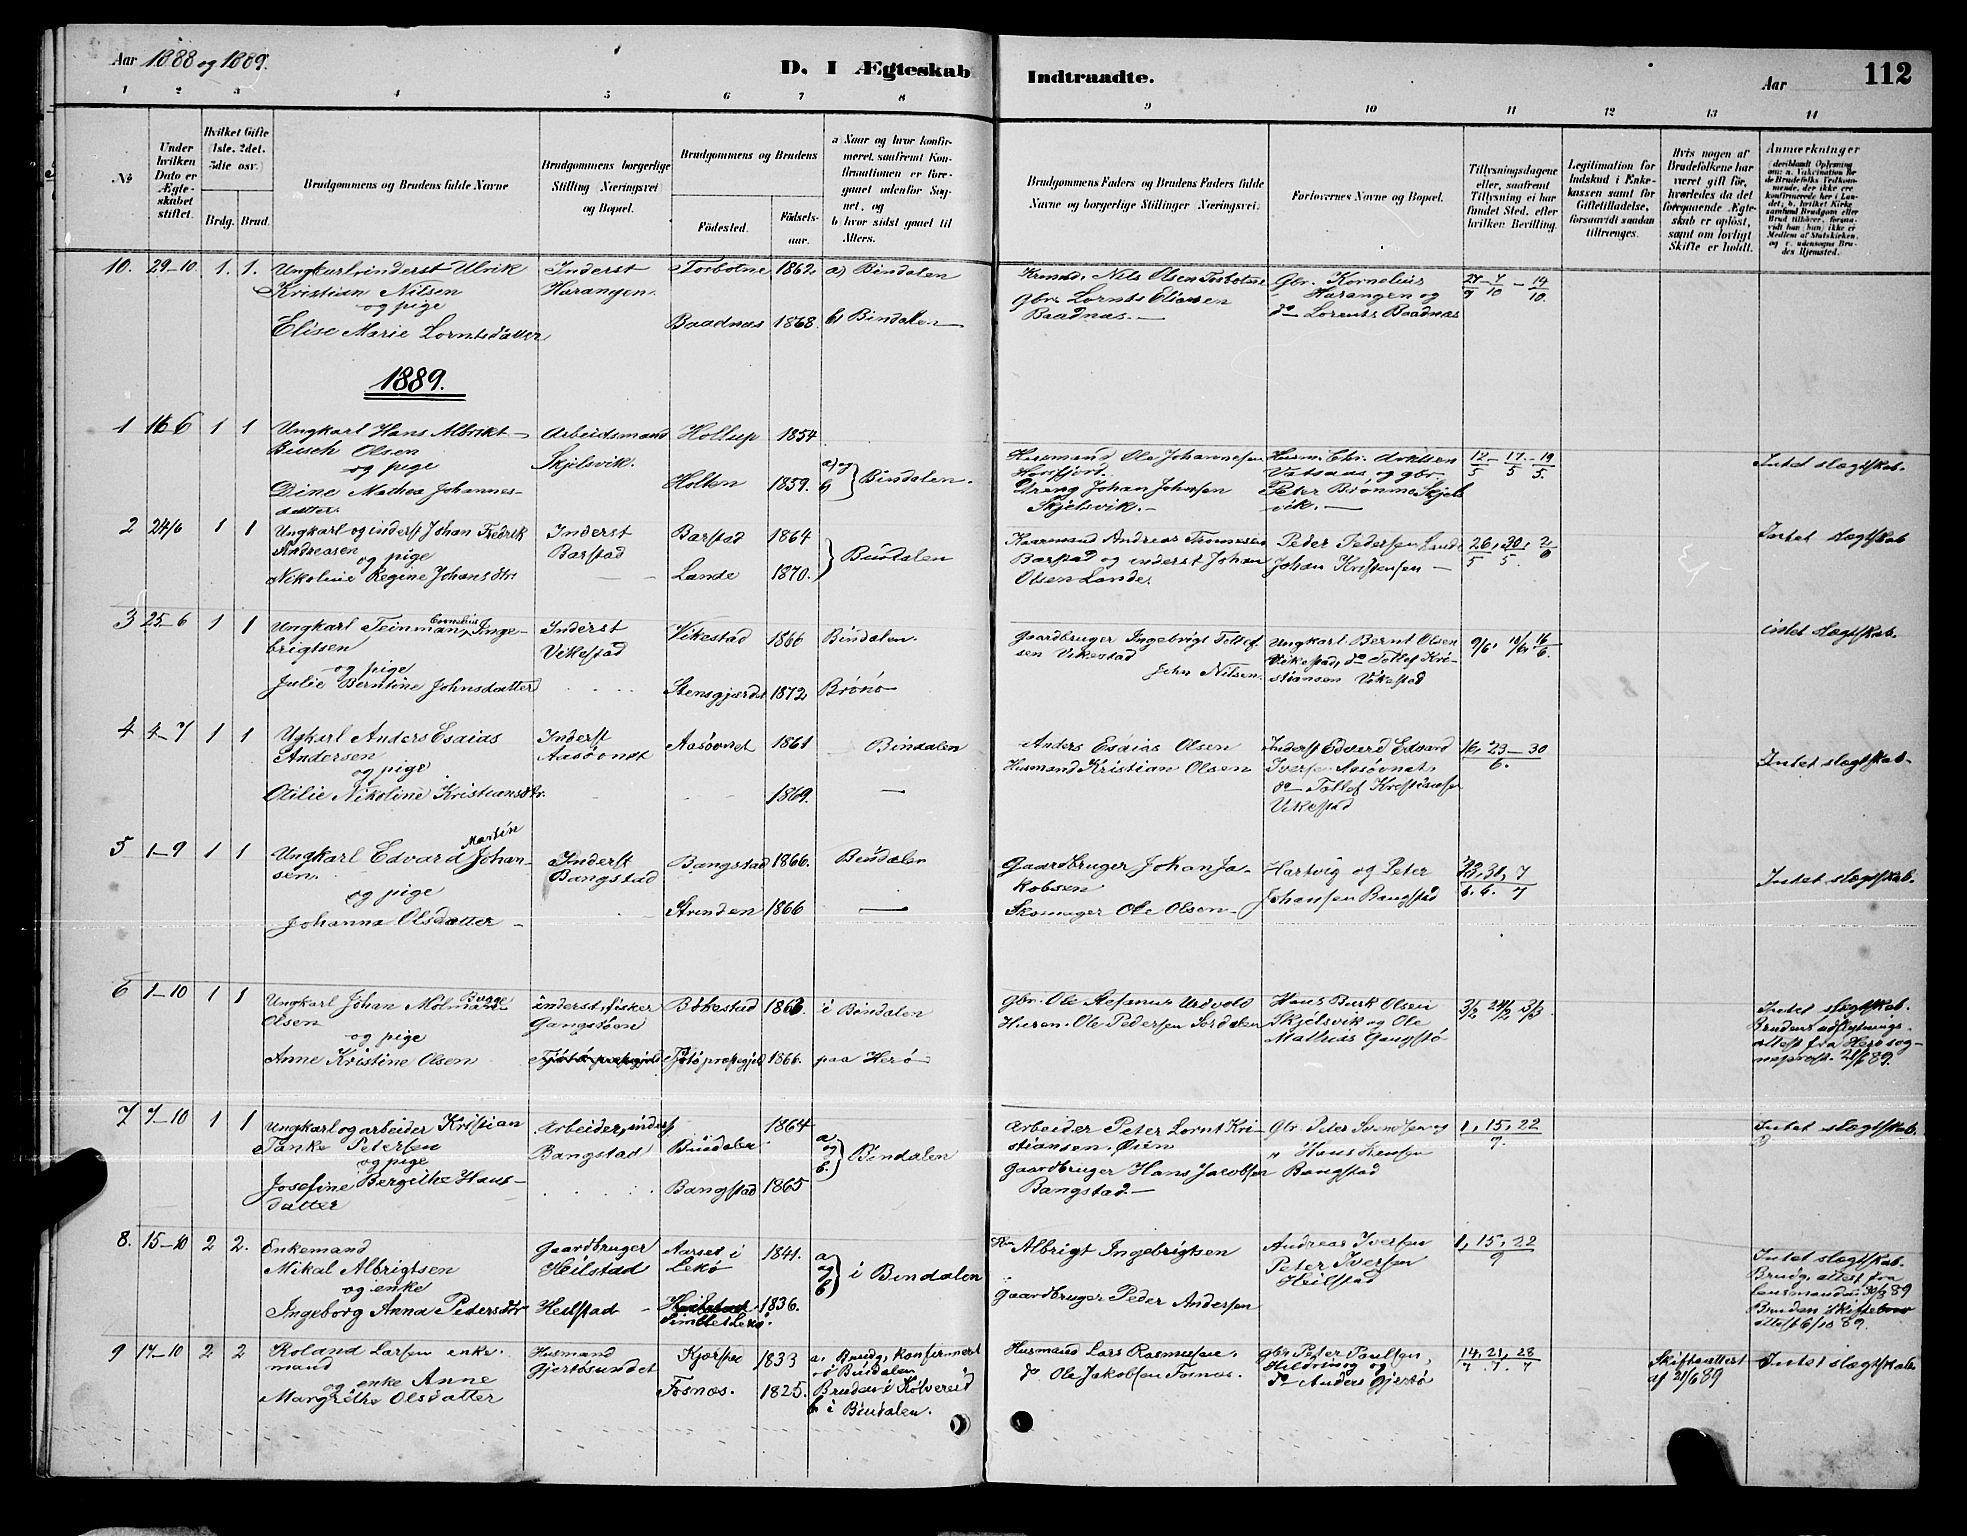 Aar 1888 og 1889.
D. I Ægteskab
Indtraadte.
Aar
112
1 2 3 4 5 6 7 8 9 10 11 12 13 14
No
Under hvilken Dato er Ægteskabet stiftet.
Hvilket Gifte (1ste, 2det, 3die osv.)
Brdg. Brud.
Brudgommens og Brudens fulde Navne
Brudgommens borgerlige Stilling Næringsvei og Bopæl.
Brudgommens og Brudens
Födested.
Födsels-aar.
a Naar og hvor konfirmeret, saafremt Konfirmationen er foregaaet udenfor Sognet, og b hvor sidst gaaet til Alters.
Brudgommens Faders og Brudens Faders fulde Navne og borgerlige Stillinger (Næringsvei.
Forlovernes Navne og Bopæl.
Tillysningsdagene eller, saafremt Tillysning ei har fundet Sted, efter hvilken Bevilling.
Legitimation for Indskud i Enkekassen samt for Giftetilladelse, forsaavidt saadan tiltrænges.
Hvis nogen af Brudefolkene har været gift för, hvorledes da det foregaaende Ægteskab er oplöst, samt om lovligt Skifte er holdt.
Anmærkninger
10. 29-10 1. 1. Ungkarl, inderst Ulrik
Kristian Nilsen
og pige
Elise Marie Lorntsdatter
Inderst
Harangen.
Tosbotne 1862
Baadnæs 1868.
a) Bindalen
b) Bindalen
Nils Olsen Tosbotne
Gbr. Lornts Eliasen
Baadnæs.
Gbr. Kornelius
Harangen og
do Lorents Baadnæs
27/9 - 7/10 - 14/10.
1889.
1 16-6 1 1 Ungkarl Hans Albrikt
Busch Olsen
og pige
Dine Mathea Johannes-
datter.
Arbeidsmand
Skjelsvik.
Hollup 1854
Holten 1859.
a) og b } Bindalen.
Husmand Ole Johannesen
Horsfjord.
Dreng Johan Johnsen
Skjelsvik.
Husm. Chr.
Vatsaas og gbr.
Peter Brönmo Skjels
vik.
12/5 - 17/5 - 19/5.
Intet slægtskab.
2 24/6 1 1 Ungkarl og inderst Johan Fredrik
Andreasen
og pige
Nikoline Regine Johansdtr.
Inderst
Barstad
Barstad 1864
Lande 1870.
} Bindalen
Andreas
Barstad og inderst Johan
Olsen Lande.
Peder Pedersen Lande
Johan Kristensen
26/5, 30/5, 2/6
Intet slægtskab
3 25-6 1 1 Ungkarl Teinman Cornelius Inge-
brigtsen
og pige
Julie Berntine Johnsdatter
Inderst
Vikestad
Vikestad 1866
Stensgjerdet 1872
Bindalen.
Brönö
Gaardbruger Ingebrigt Tollef
sen Vikestad
John Nilsen.
Ungkarl Bernt Olsen
Vikestad, do Tollef Kri-
stiansen Vikestad
9/6, 10/6, 16/6.
intet slægtskab.
4 4-7 1 1 Ugkarl Anders Esaias
Andersen
og pige
Otilie Nikoline Kristiansdtr.
Inderst
Aasövnet
Aasövnet 1861
1869.
Bindalen
Anders Esaias Olsen
Husmand Kristian Olsen
Inderst Edvard Edvard
Iversen Aasövnet
do Tollef Kristiansen
Vikestad
16, 23 - 30
6.
Intet slægtskab.
5 1-9 1 1 Ungkarl Edvard Martin Johan-
sen.
og pige
Johanna Olsdatter
Inderst
Bangstad
Bangstad 1866.
Strinden 1866
Bindalen
Gaardbruger Johan Ja-
kobsen
Skomager Ole Olsen
Hartvig og Peter
Johansen Bangstad
Intet slægtskab.
6 1-10 1 1 Ungkarl Johan Bugge
Olsen
og pige
Anne Kristine Olsen
inderst, fisker
Gangstöen
Bökestad 1863
Tjötö præstgjeld 1866.
i Bindalen
paa Herö
Gbr. Ole Stefanus Urdvold
Ole Pedersen Sördalen
Hans Busk Olsen
Skjelsvik og Ole
Mathias Gangstö
3/2 24/2 3/3
Intet slægtskab.
Brudens udflytnings-
attest fra Herö sog-
neprest 21/6 89.
7 7-10 1 1 Ungkarl og arbeider Kristian
Tanke Petersen
og pige
Josefine Bergithe Hans-
datter
Arbeider, inderst
Bangstad
Bindalen 1864
Bangstad 1865
a. og b. } Bindalen
Arbeider Peter Lornt Kri-
stiansen Öien
Gaardbruger Hans Jacobsen
Bangstad.
Gbr. Peter Svendsen og
" Hans Jensen
Bangstad
1, 15, 22
7.
Intet slægtskab.
8. 15-10 2 2. Enkemand
Mikal Albrigtsen
og enke
Ingeborg Anna Pedersdtr
Gaardbruger
Heilstad
Heilstad
Aarset i
Lekö 1841.
Simblet Lekö. 1836.
a og b } i Bindalen
Albrigt Ingebrigtsen
Gaardbruger Peder Andersen
Andreas Iversen
Peter Iversen
Heilstad
1, 15, 22
9
Intet slægtskab.
Brudg. attest fra
Lensmanden 30/8 89
Bruden skiftebrev
attest 6/10 89.
9 17-10 2 2 Roland Larsen enke-
mand
og enke Anne
Margrethe Olsdatter
Husmand
Gjertösundet
Kjørstad 1833
Fosnæs. 1825.
a. Brudg. konfirmert
i Bindalen
Bruden i Kolvereid
b i Bindalen.
Husmand Lars Rasmusen.
do. Ole Jakobsen Fosnæs.
gbr Peter Paulsen,
Hildring og
do Anders Gjertö
14, 21, 28
7 7. 7
Skifteattest
af 21/6 89
Intet slægtskab